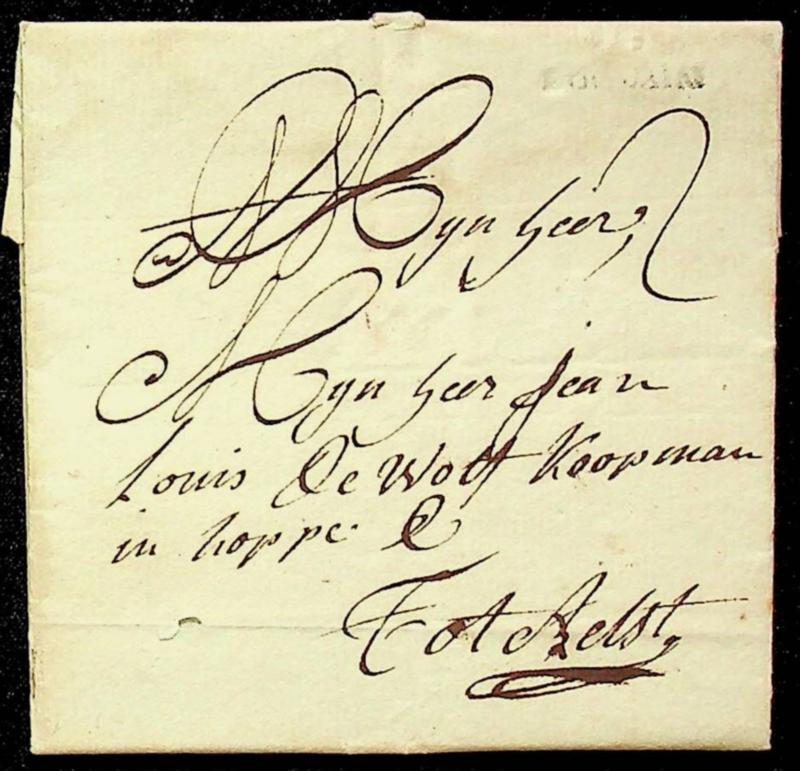 Myn heer,
Myn heer Jean
Louis De Wolf Koopman
in hoppe &
Tot Aelst,